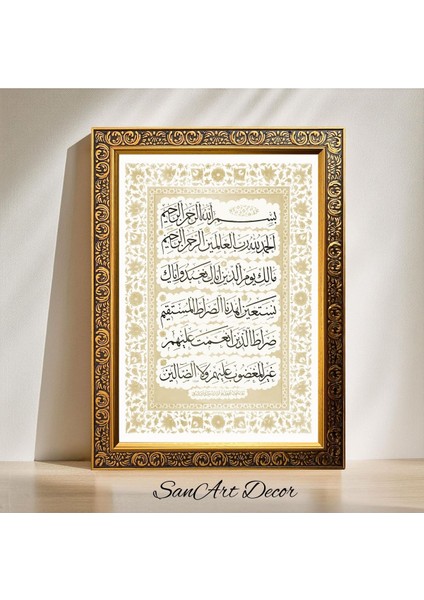 بسم الله الرحمن الرحيم
الحمد لله رب العالمين الرحمن الرحيم
مالك يوم الدين إياك نعبد وإياك
نستعين اهدنا الصراط المستقيم
صراط الذين أنعمت عليهم
غير المغضوب عليهم ولا الضالين
SanArt Decor